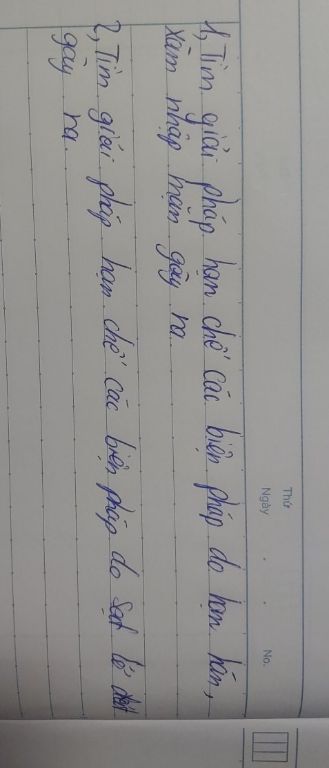 Thứ
Ngày . . No.
1, Tìm giải pháp hạn chế các biện pháp do hạn hán,
xâm nhập mặn gây ra
2, Tìm giải pháp hạn chế các biện pháp do sạt lở đất
gây ra.